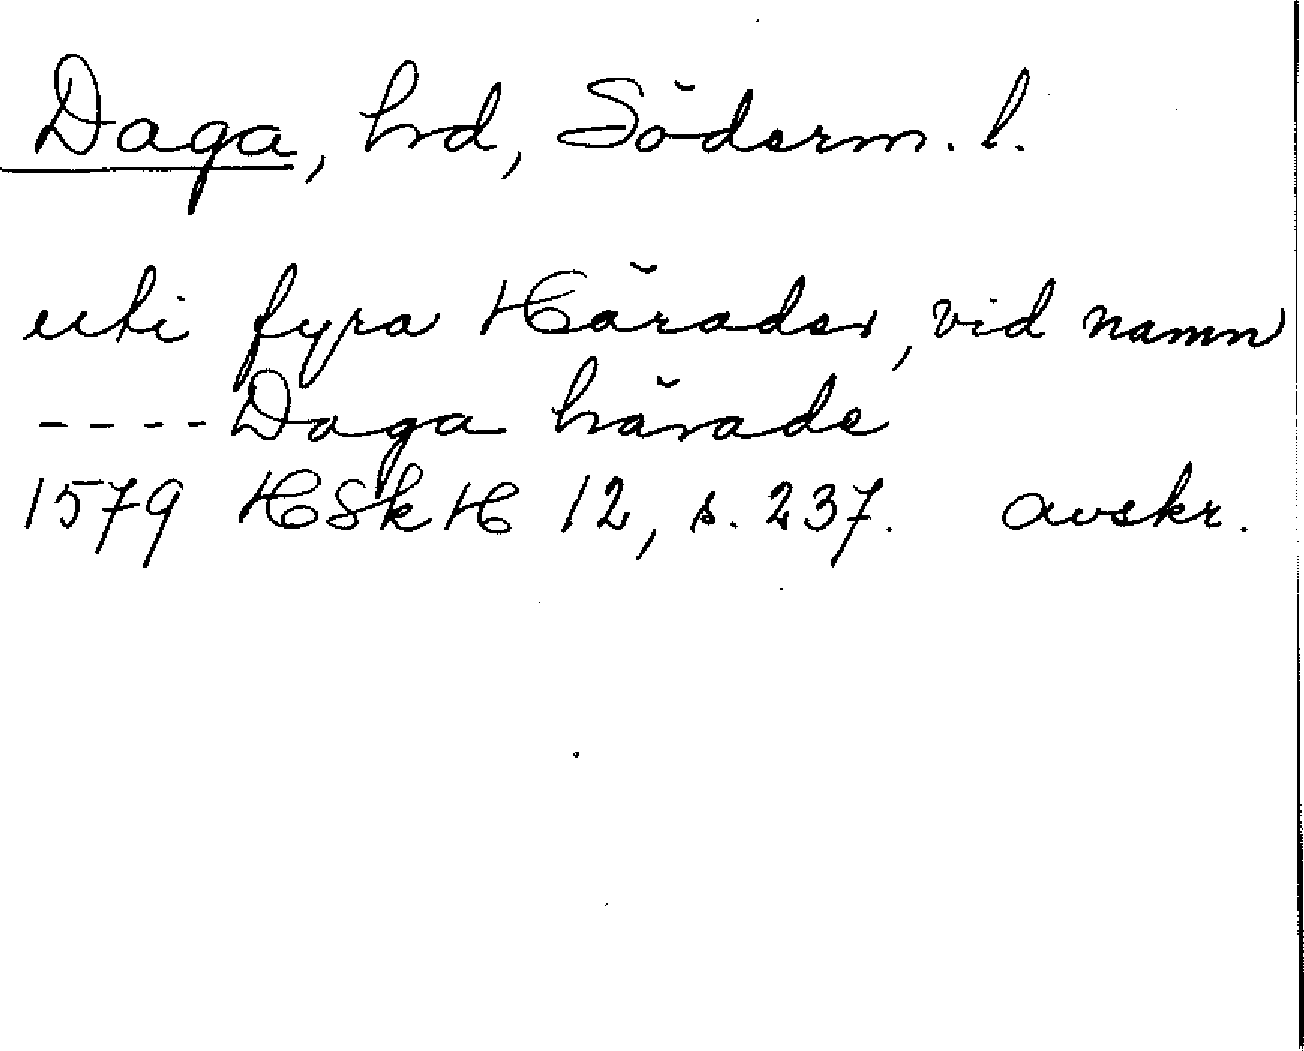 Daga, hrd, Söderm. l.
uti fyra Härader, vid namn
---- Daga härade
1579 HSkH 12, s. 237. avskr.